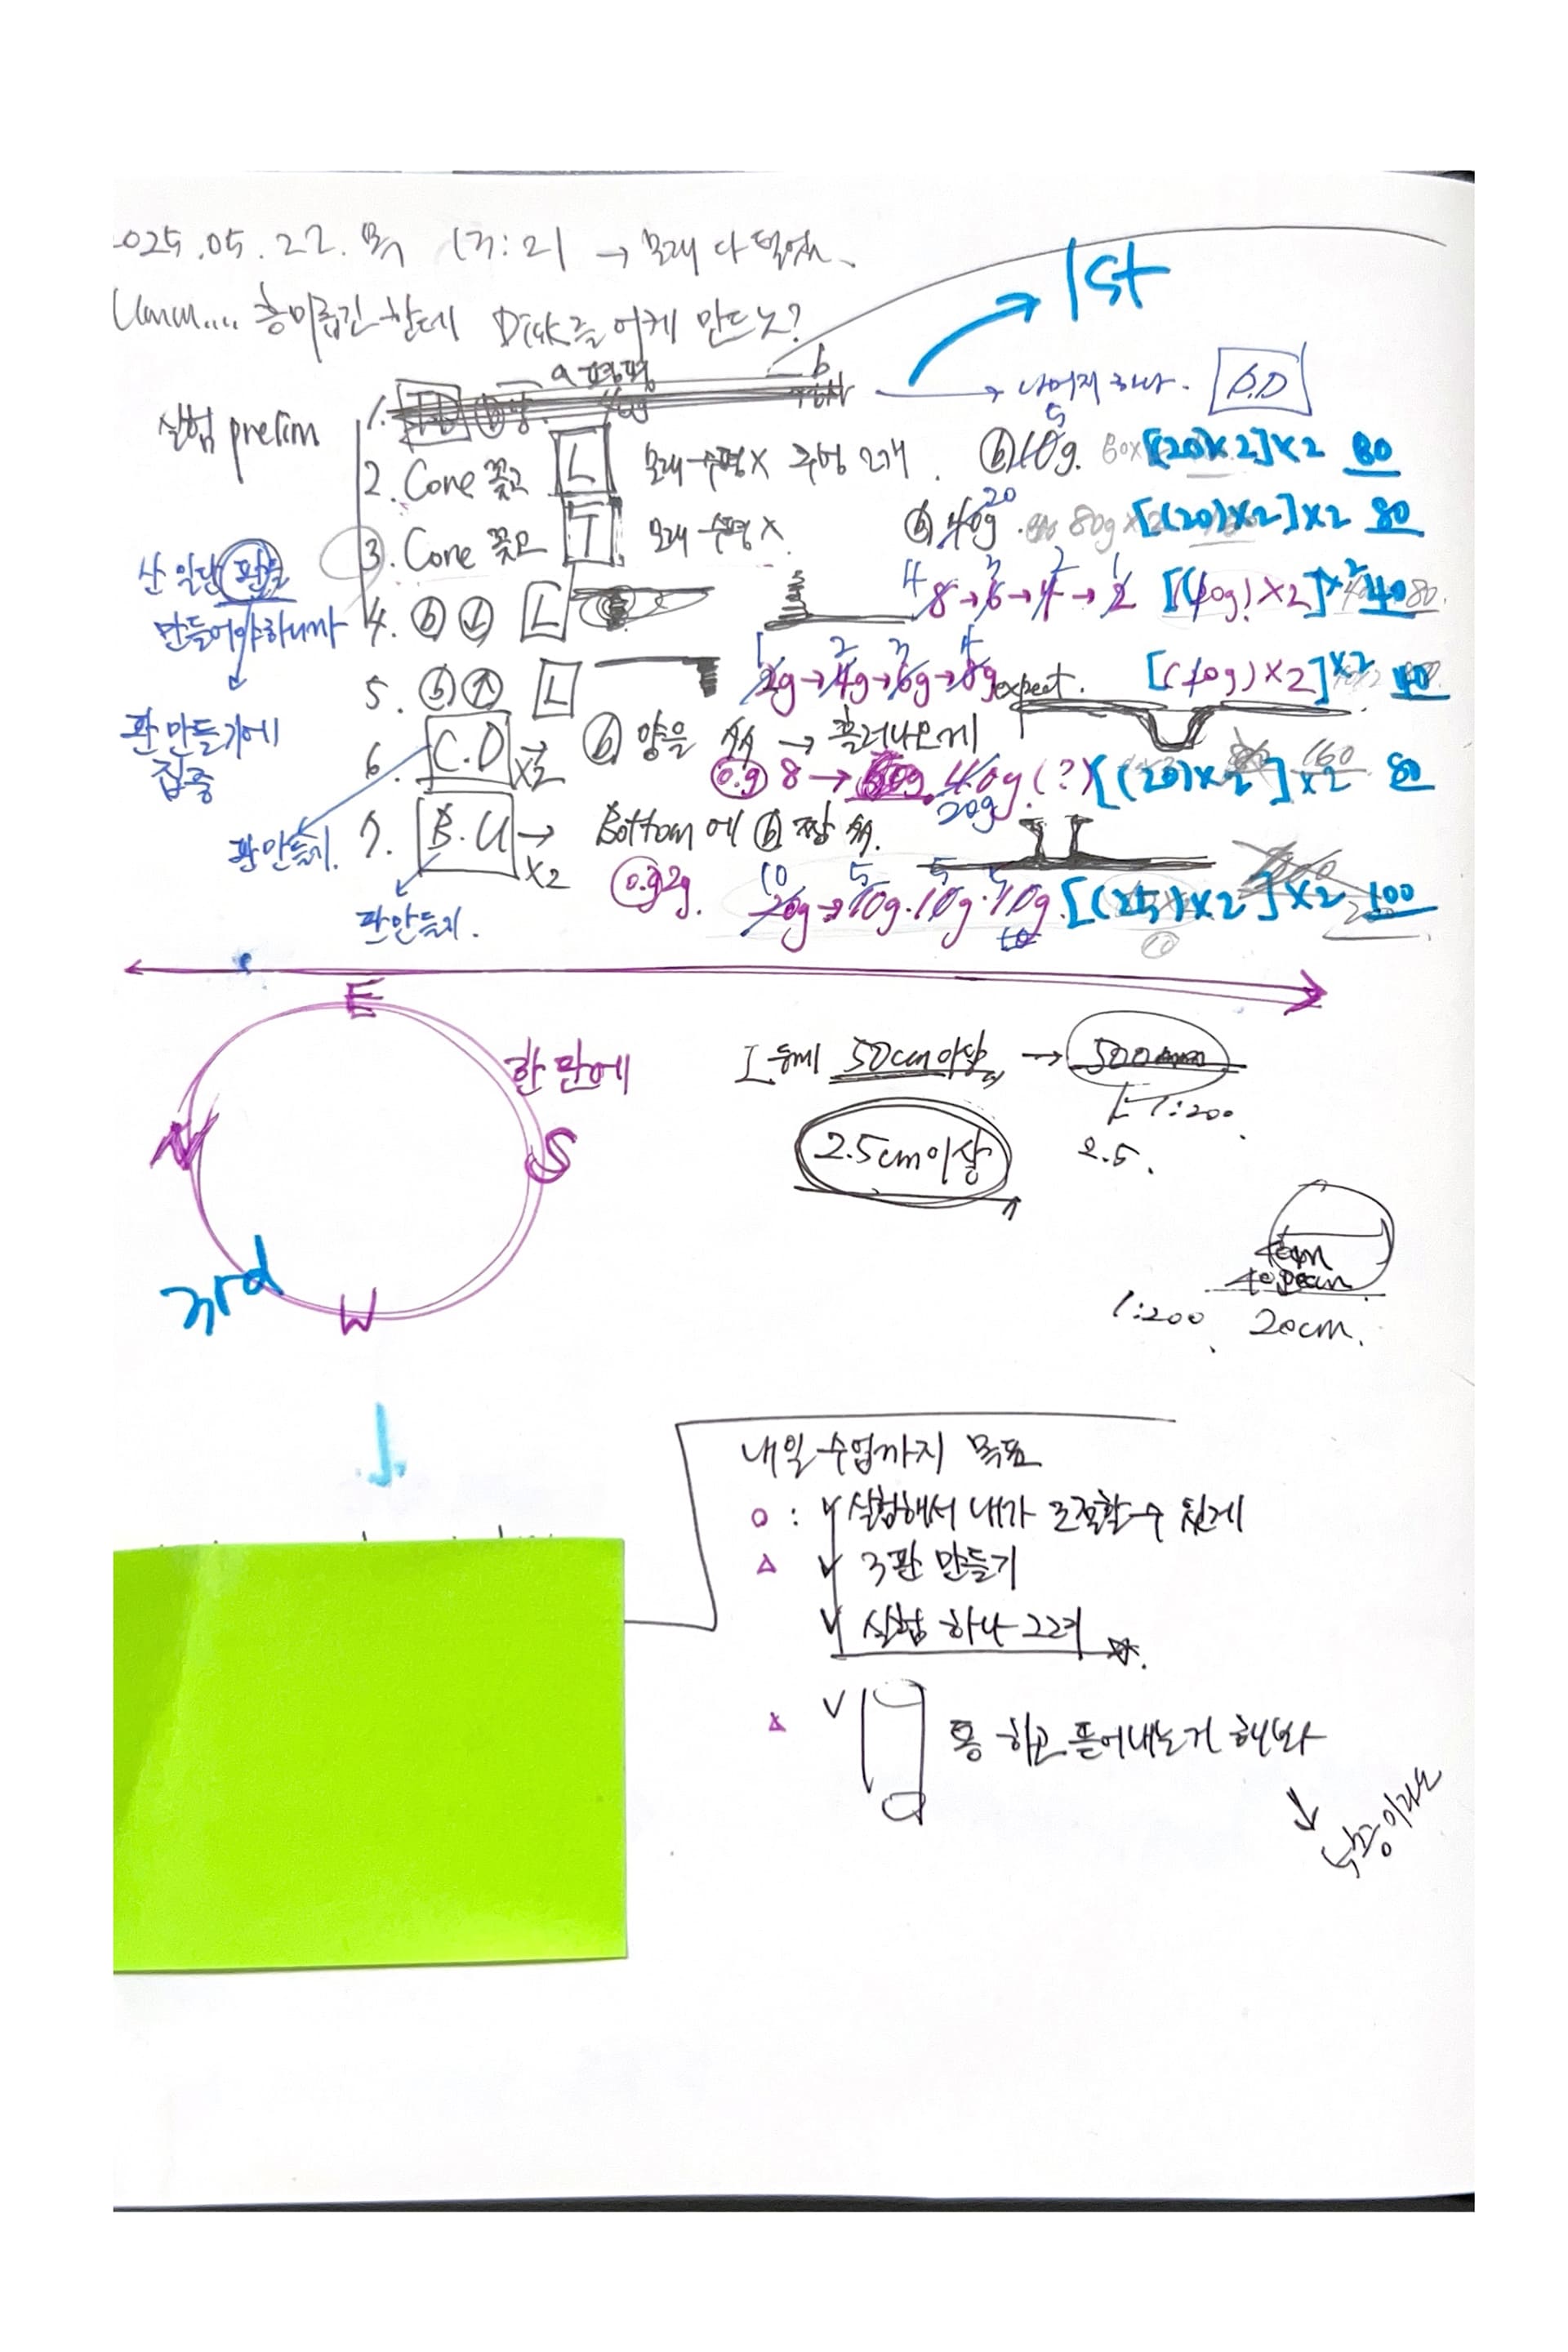 2025.05.22. 목 17:21 → 모래 다 털었
Umm.... 흥미롭긴 한데 Disk를 어케 만드노?
1st
a 평평 b
→ 나머지 하나. B.D
실험 prelim
1.
2. Cone 꽂고 L 모래 수평X 구멍 2개. ⓑ 10g. 5 [(20)×2]×2 80
3. Cone 꽂고 T 모래 수평X. ⓑ 40g. 20 80g [(20)×2]×2 80
산 일단 판을
만들어야하니까
↓
판 만들기에
집중
4. ⓑ ↓ L 8→6→4→2 4 3 2 1 [(10g)×2]×2 40
5. ⓑ ↑ L 2g→4g→6g→8g 1 2 3 4 [(10g)×2]×2 40
expect.
6. C.D ×2 → ⓑ 양을 → 흘러나오게
0.g 8 → 40g(?) 20g [(20)×2]×2 160 80
판만들기.
7. B.U ×2 → Bottom에 ⓑ 짱
0.g 2g. 20g→10g.10g.10g. 10 5 5 5 [(25)×2]×2 100
판만들기.
E
한 판에
N
S
3rd
W
50cm이상 → 500mm
1:200.
2.5cm이상
2.5.
40cm
1:200. 20cm.
내일 수업까지 목표
○ : ∨ 실험해서 내가 조절할 수 있게
△ ∨ 3판 만들기
∨ 실험 하나 그려 ☆.
△ ∨ 통 하고 뜯어내는거 해봐
↓